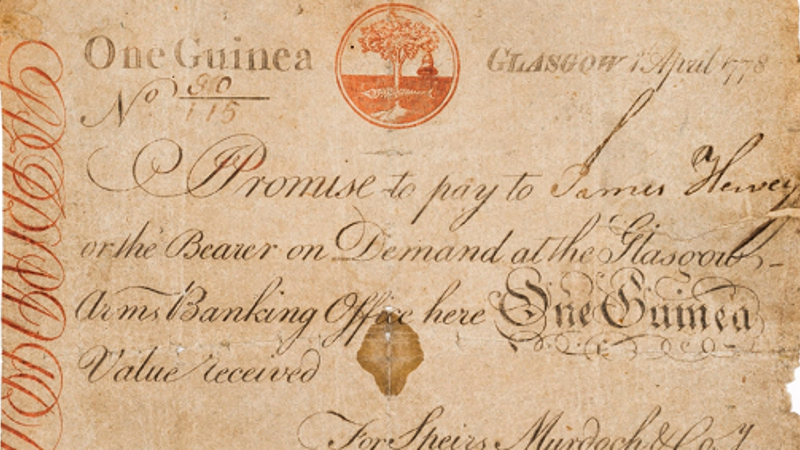 One Guinea GLASGOW 1 April 1778
No 90/115
I Promise to pay to James Hervey
or the Bearer on Demand at the Glasgow
Arms Banking Office here One Guinea
Value received
For Speirs Murdoch & Coy